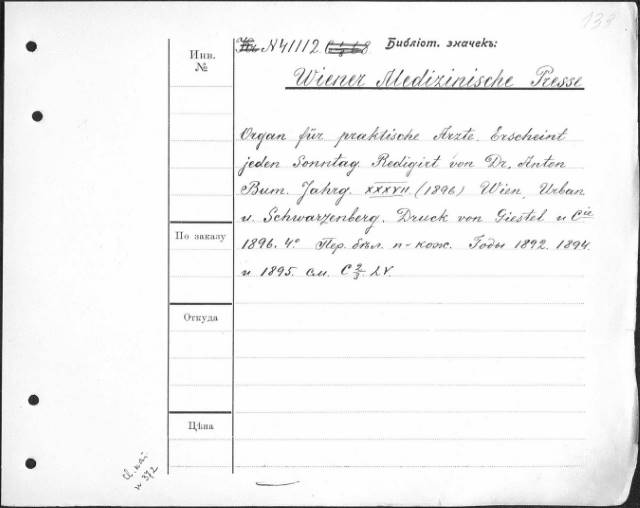 139
Инв. №
N 41112 Библіот. значекъ:
Wiener Medizinische Presse
Organ für praktische Ärzte. Erscheint
jeden Sonntag. Redigirt von Dr. Anton
Bum. Jahrg. XXXVII. (1896) Wien, Urban
u. Schwarzenberg. Druck von Giestel u Cie
1896. 4° Пер. бѣл. п-кож. Годы 1892. 1894.
и 1895. см. C 2/3. LV.
По заказу
Откуда
Цѣна
w 372